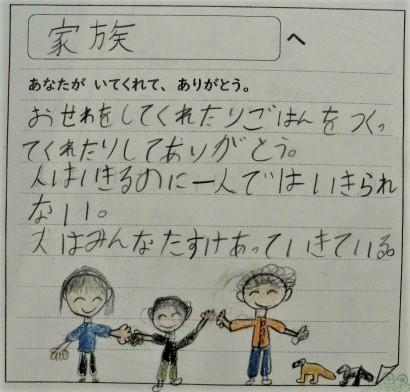 家族
へ
あなたが いてくれて、ありがとう。
おせわをしてくれたりごはんをつくっ
てくれたりしてありがとう。
人はいきるのに一人ではいきられ
ない。
人はみんなたすけあっていきている。